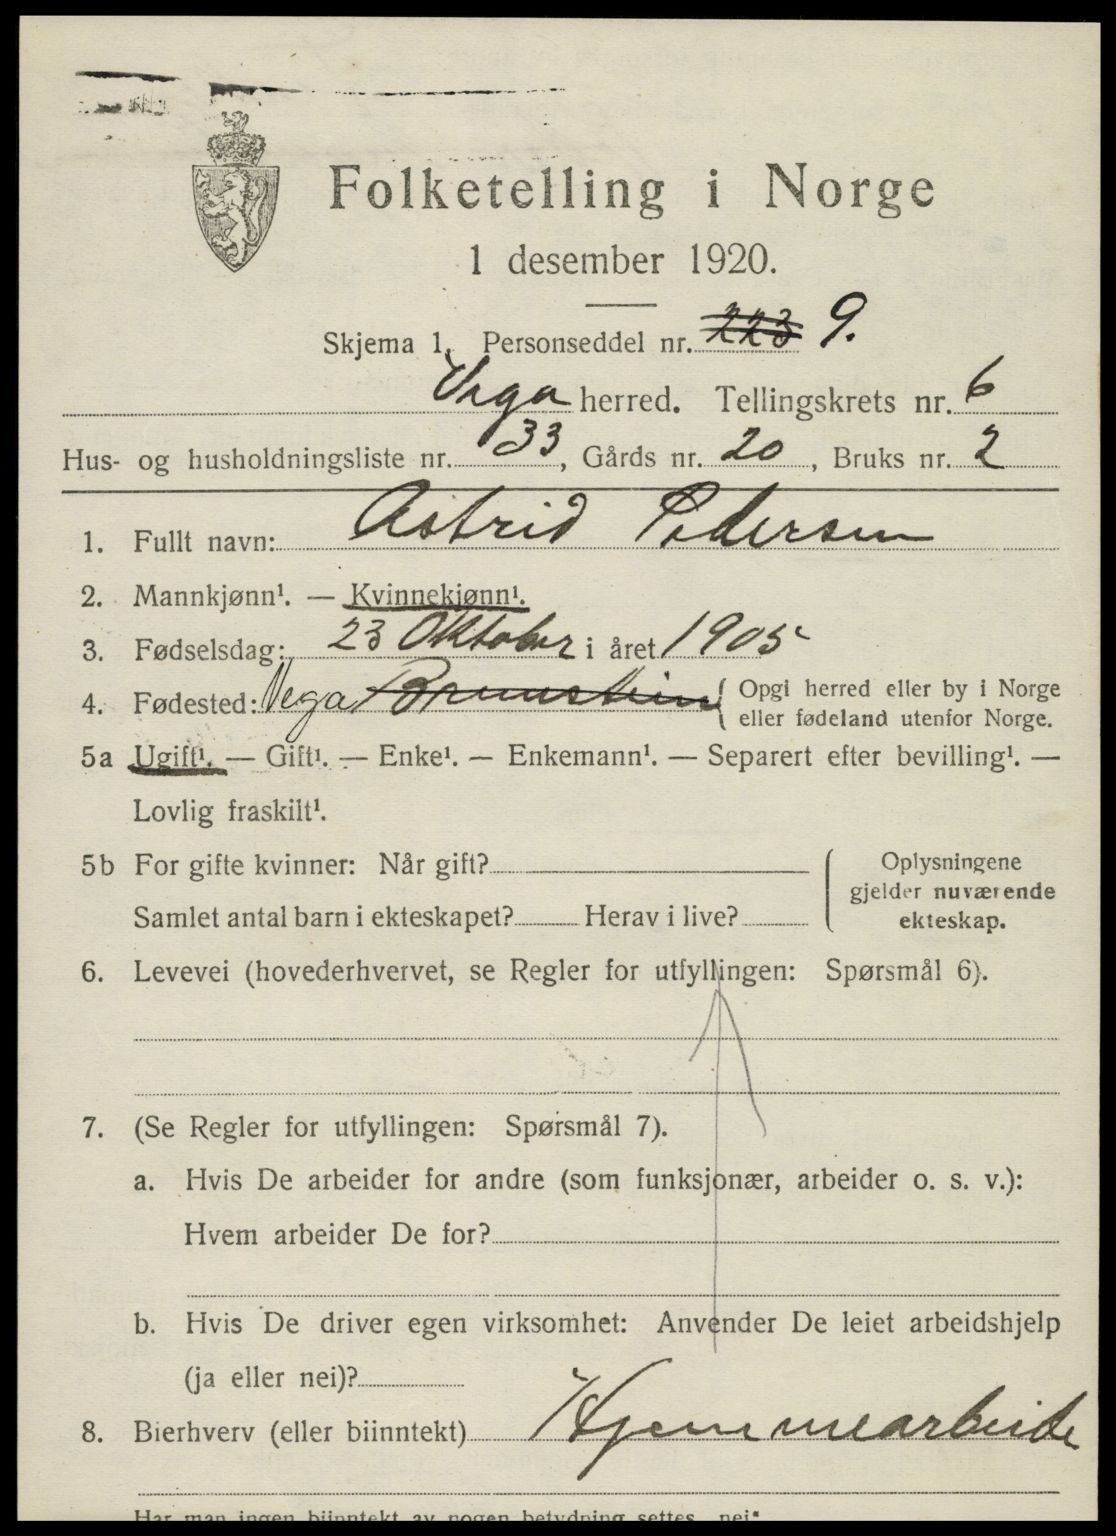 Folketelling i Norge
1 desember 1920.
Skjema 1. Personseddel nr. 223 9.
Vega herred. Tellingskrets nr. 6
Hus- og husholdningsliste nr. 33, Gårds nr. 20, Bruks nr. 2
1. Fullt navn: Astrid Pedersen
2. Mannkjønn¹. — Kvinnekjønn¹.
3. Fødselsdag: 23 Oktober i året 1905
4. Fødested: Vega { Opgi herred eller by i Norge
eller fødeland utenfor Norge.
5a Ugift¹. — Gift¹. — Enke¹. — Enkemann¹. — Separert efter bevilling¹. —
Lovlig fraskilt¹.
5b For gifte kvinner: Når gift?
Samlet antal barn i ekteskapet? Herav i live?
( Oplysningene
gjelder nuværende
ekteskap.
6. Levevei (hovederhvervet, se Regler for utfyllingen: Spørsmål 6).
7. (Se Regler for utfyllingen: Spørsmål 7).
a. Hvis De arbeider for andre (som funksjonær, arbeider o. s. v.):
Hvem arbeider De for?
b. Hvis De driver egen virksomhet: Anvender De leiet arbeidshjelp
(ja eller nei)?
8. Bierhverv (eller biinntekt) Hjemmearbeide
Har man ingen biinntekt av nogen betydning settes „nei“